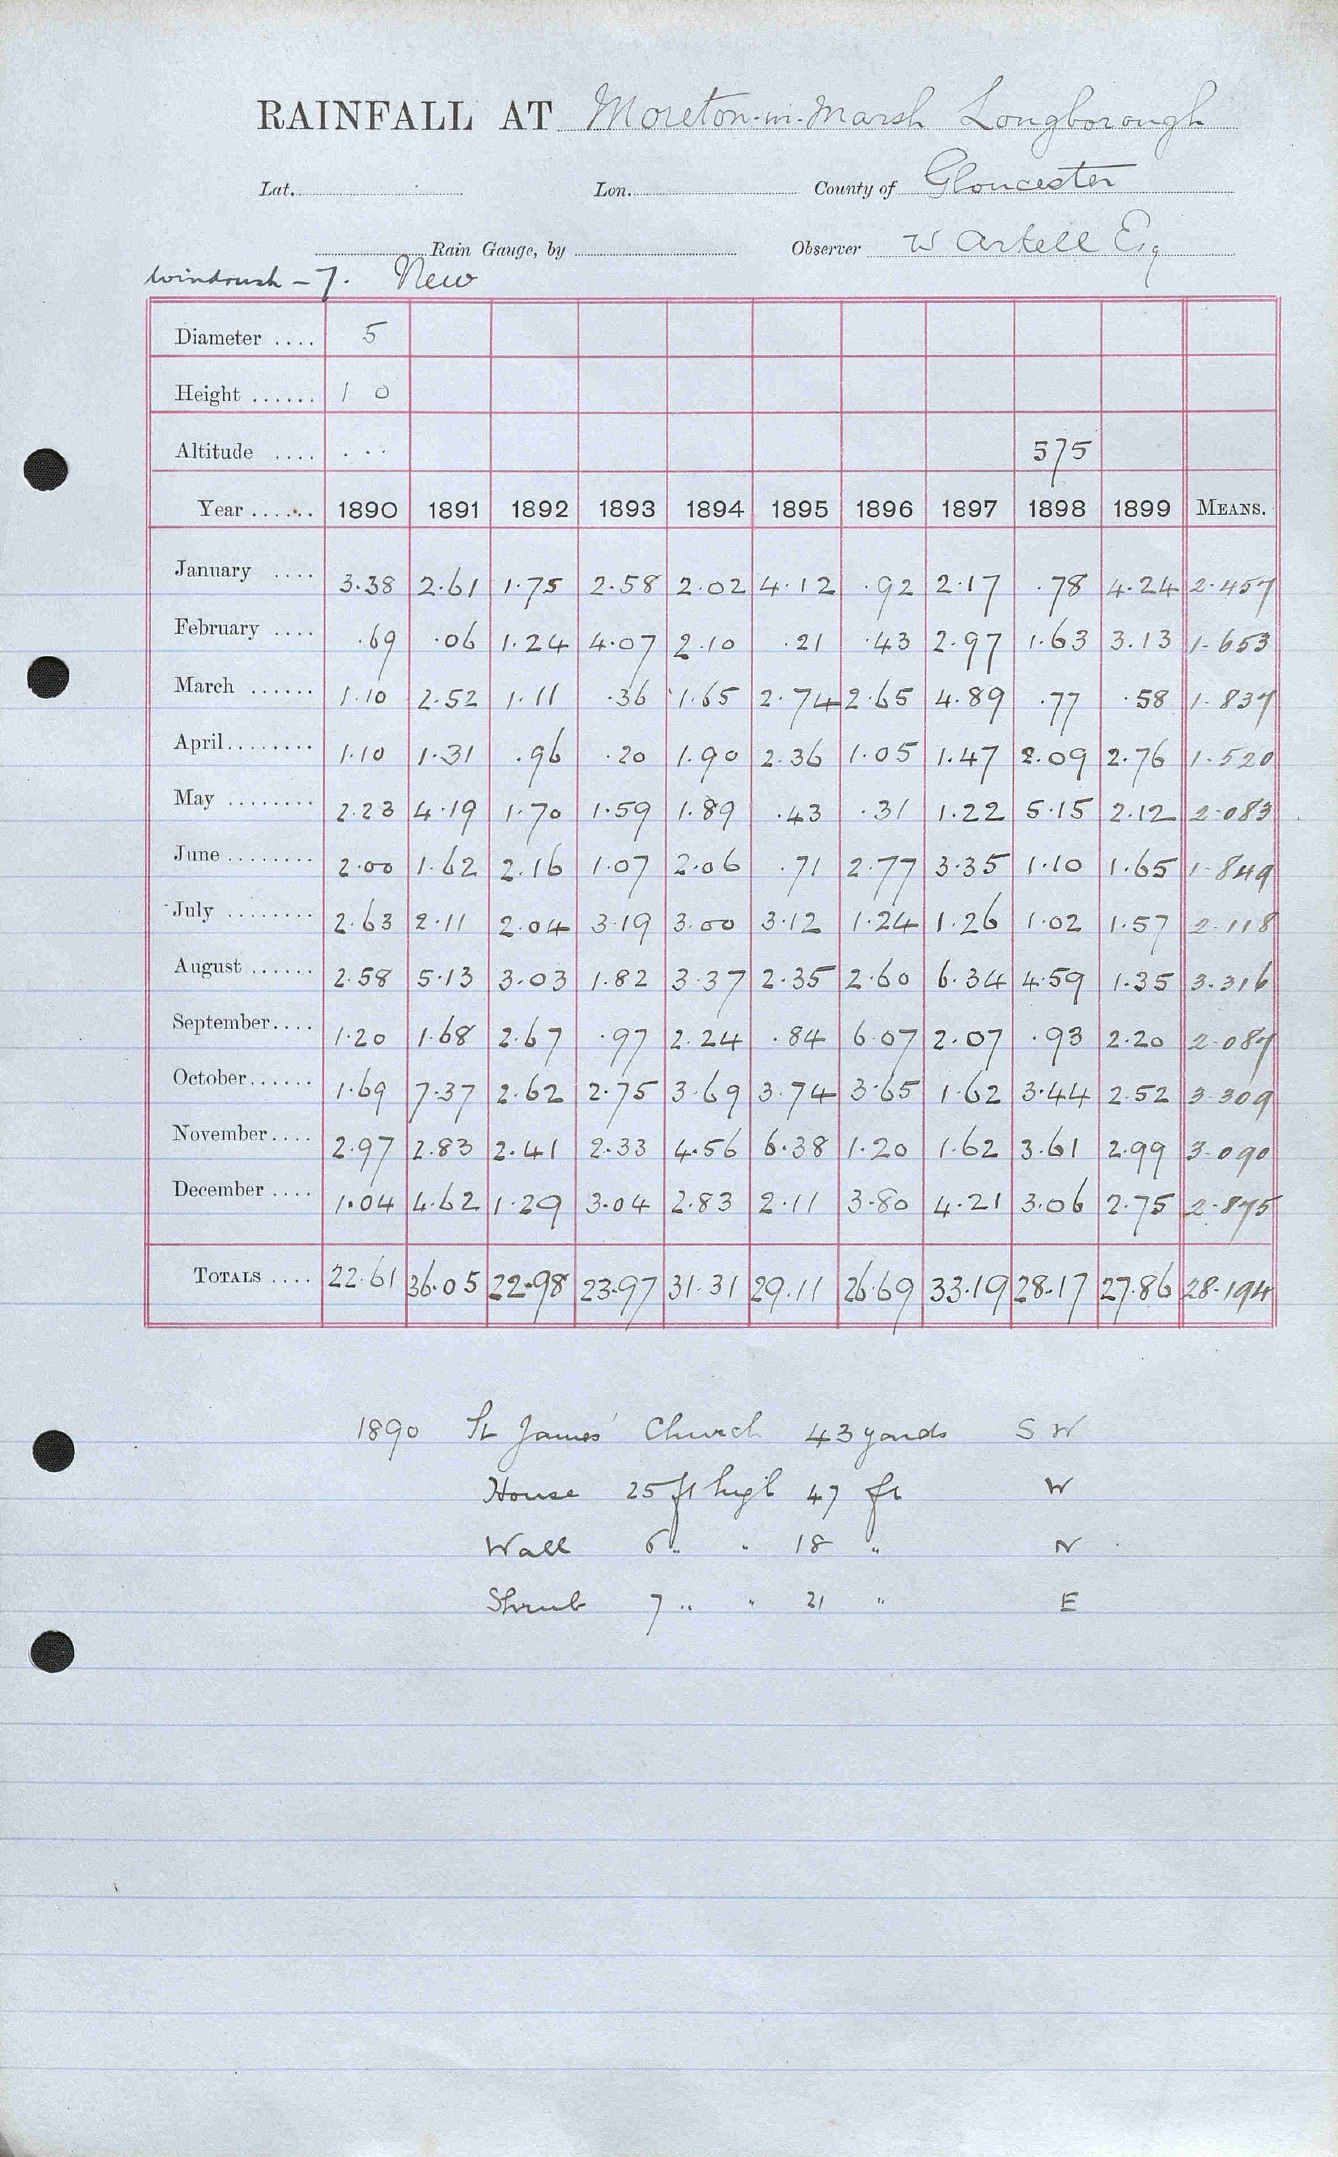 RAINFALL AT Moreton-in-Marsh Longborough
Lat. Lon. County of Gloucester
Rain Gauge, by Observer W Arkell Esq
Windrush - 7. New
Diameter .... 5
Height ...... 1 0
Altitude .... . . . 575
Year ...... 1890 1891 1892 1893 1894 1895 1896 1897 1898 1899 MEANS.
January .... 3.38 2.61 1.75 2.58 2.02 4.12 .92 2.17 .78 4.24 2.457
February .... .69 .06 1.24 4.07 2.10 .21 .43 2.97 1.63 3.13 1.653
March ...... 1.10 2.52 1.11 .36 1.65 2.74 2.65 4.89 .77 .58 1.837
April........ 1.10 1.31 .96 .20 1.90 2.36 1.05 1.47 2.09 2.76 1.520
May ........ 2.23 4.19 1.70 1.59 1.89 .43 .31 1.22 5.15 2.12 2.083
June ........ 2.00 1.62 2.16 1.07 2.06 .71 2.77 3.35 1.10 1.65 1.849
July ........ 2.63 2.11 2.04 3.19 3.00 3.12 1.24 1.26 1.02 1.57 2.118
August ...... 2.58 5.13 3.03 1.82 3.37 2.35 2.60 6.34 4.59 1.35 3.316
September.... 1.20 1.68 2.67 .97 2.24 .84 6.07 2.07 .93 2.20 2.087
October...... 1.69 7.37 2.62 2.75 3.69 3.74 3.65 1.62 3.44 2.52 3.309
November.... 2.97 2.83 2.41 2.33 4.56 6.38 1.20 1.62 3.61 2.99 3.090
December .... 1.04 4.62 1.29 3.04 2.83 2.11 3.80 4.21 3.06 2.75 2.875
TOTALS .... 22.61 36.05 22.98 23.97 31.31 29.11 26.69 33.19 28.17 27.86 28.194
1890 St James' Church 43 yards S W
House 25 ft high 47 ft W
Wall 6 " " 18 " N
Shrub 7 " " 21 " E